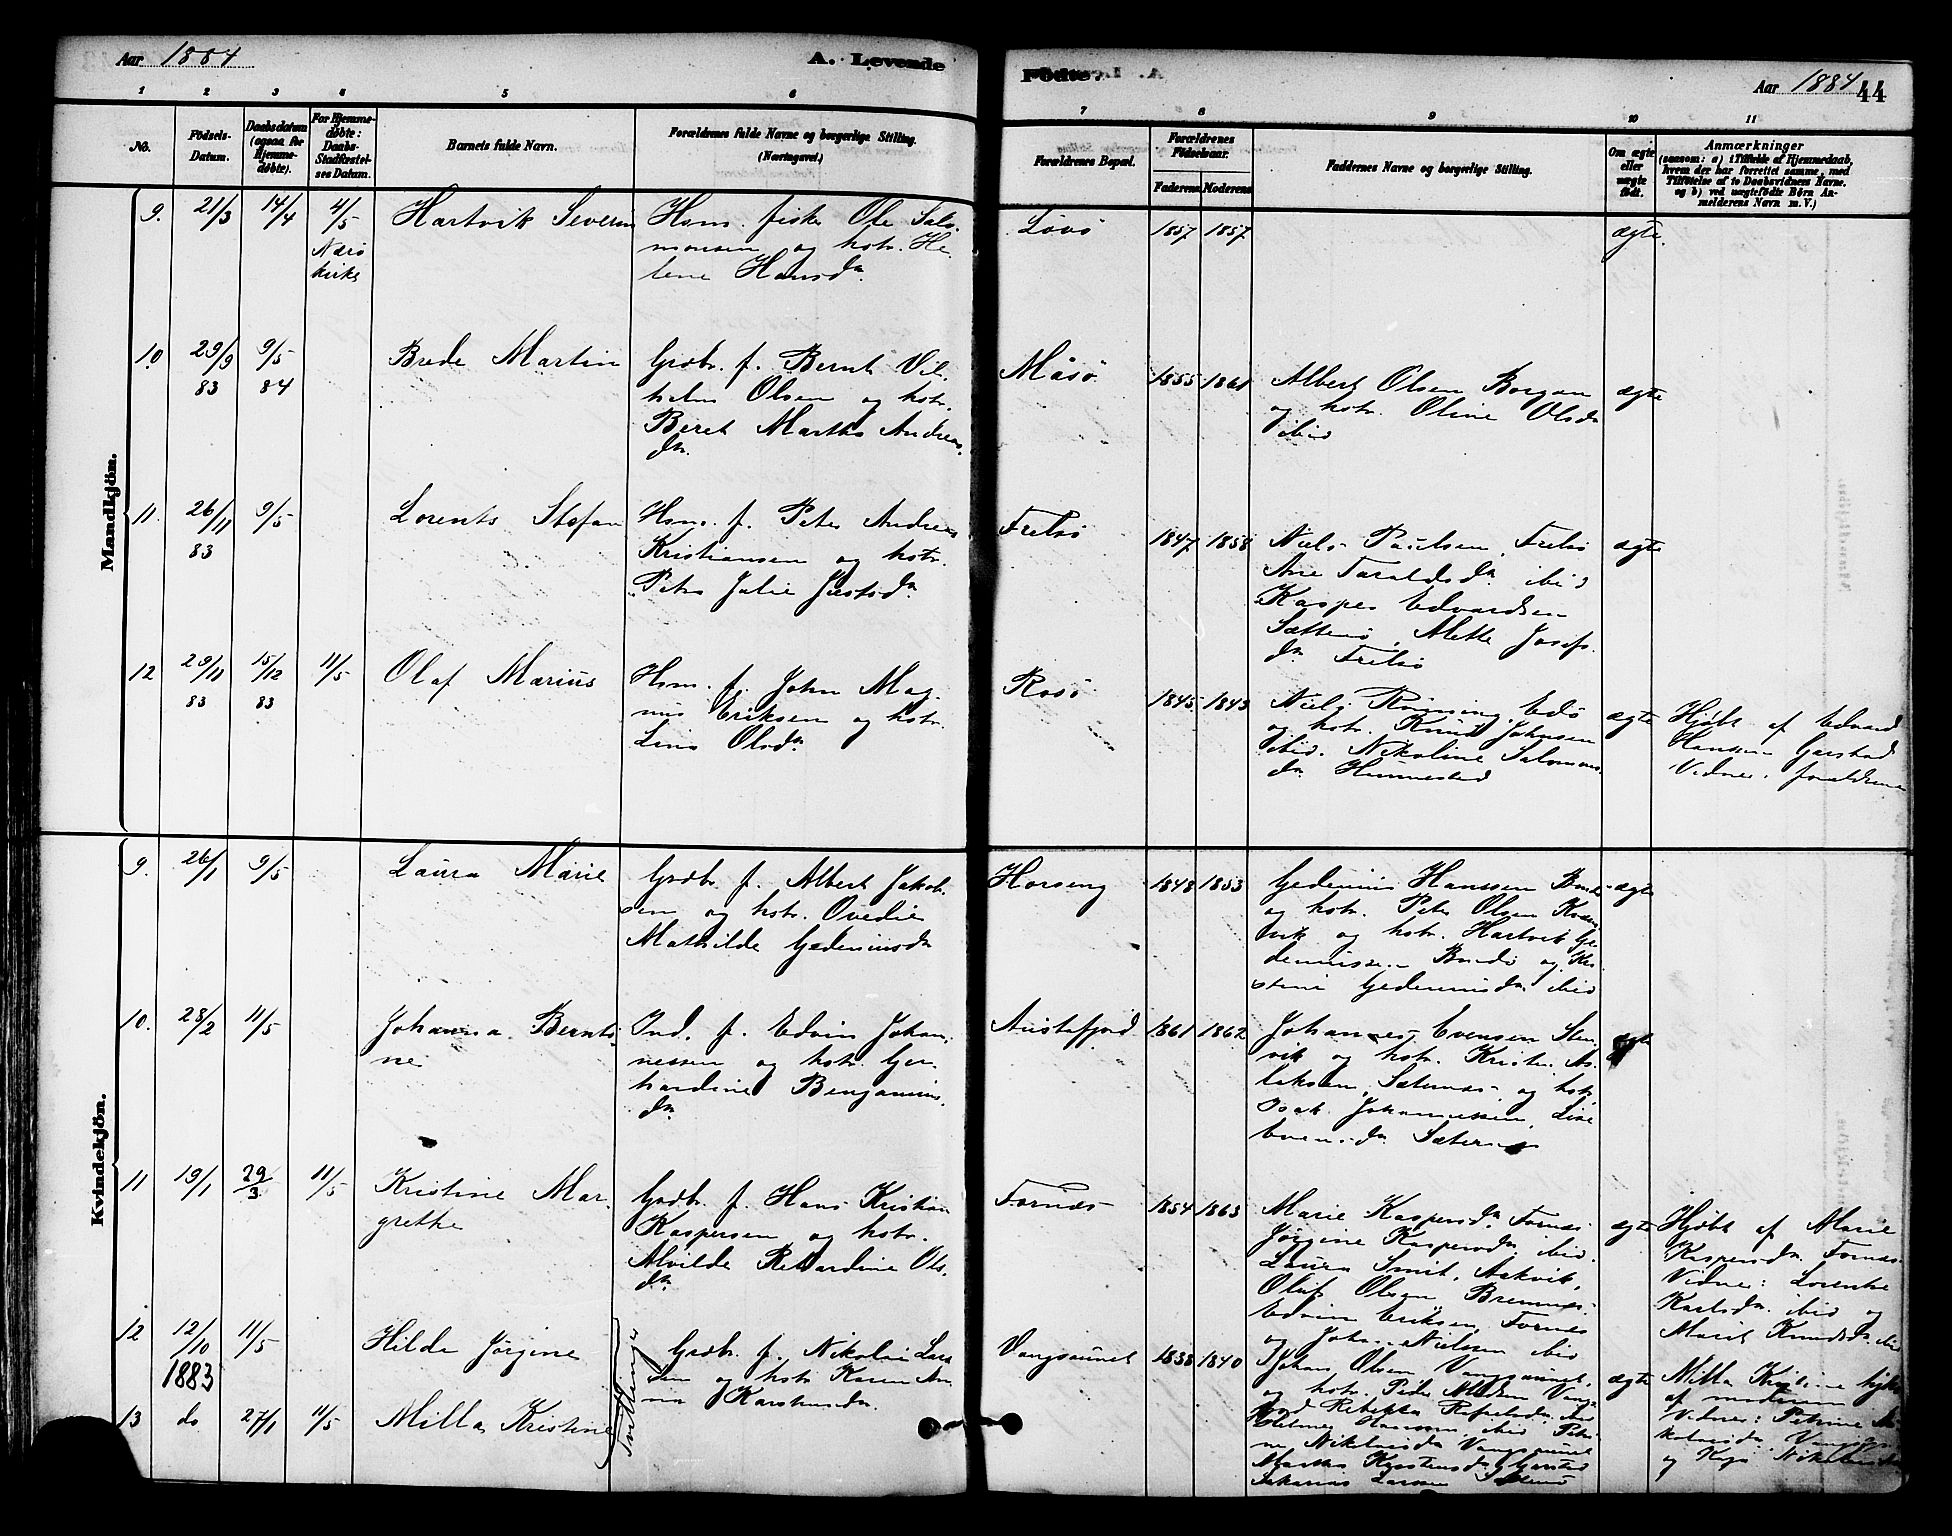 Aar 1884
A. Levende
Födte.
Aar 1884
44
1 2 3 4 5 6 7 8 9 10 11
No.
Födsels-Datum.
Daabsdatum (ogsaa for Hjemme-döbte).
For Hjemme-döbte: Daabs-Stadfæstel-ses Datum.
Barnets fulde Navn.
Forældrenes fulde Navne og borgerlige Stilling. (Næringsvei.)
Forældrenes Bopæl.
Forældrenes Födselsaar.
Faderens Moderens
Faddernes Navne og borgerlige Stilling.
Om ægte eller uægte født.
Anmærkninger
(saasom: a) i Tilfælde af Hjemmedaab, hvem der har forrettet samme, med Tilföielse af to Daabsvidners Navne, og b) ved uægtefödte Börn An-melderens Navn m. V.)
Mandkjön.
9. 21/3 14/4 4/5 Nærö kirke
Hartvik Severin
Hsm. fisk. Ole Salo-
monsen og hstr. He-
lene Hansdr.
Lövö 1857 1857 ægte.
10 29/9 83 9/5 84
Brede Martin
Grdbr. f. Bernt Vil-
helm Olsen og hstr.
Beret Martha Andreas
dr.
Måsö 1855 1861
Albert Olsen Borgan
og hstr. Oline Olsdr
ibid
ægte
11. 26/11 83 9/5
Lorents Stefan
Hsm. f. Peter Andreas
Kristiansen og hstr.
Petra Julie Justsdr.
Frelsö 1847 1858
Niels Paulsen, Frelsö
Ane Taraldsdr. ibid
Kasper Edvardsen
Sætterö, Mette Josefs
dr. Frelsö
ægte
12 29/11 83 15/12 83 11/5
Olaf Marius
Hsm. f. John Mag-
nus Eriksen og hstr.
Lina Olsdr.
Rosö 1845 1843
Niels Rönning, Edö
og hstr. Knud Johnsen
ibid. Nikoline Salomons
dr. Hummestad
ægte
Hjdbt. af Edvard
Hansen Garstad
Vidner: forældrene
Kvindekjön.
9. 26/1 9/5
Laura Marie
Grdbr. f. Albert Jakob-
sen og hstr. Ovedie
Mathilde Gedeniusdr
Horseng 1848 1853
Gedenius Hanssen
og hstr. Peter Olsen
vik og hstr. Hartvik Ge-
deniussen og Kri-
stine Gedeniusdr. ibid
ægte
10. 28/2 11/5
Johanna Bernti-
ne
Ind. f. Edvin Johan-
nessen og hstr. Ger-
hardine Benjamins
dr.
Austafjord 1861 1862
Johannes Evensen Sten-
vik og hstr. Krist. As-
laksen, Sæternes og hstr.
Isak Johannessen, Lise
Evensdr. Sæternes
ægte
11 19/1 29/3 11/5
Kristine Mar-
grethe
Grdbr. f. Hans Kristian
Kaspersen og hstr.
Alvilde Rikardine Ols-
dr.
Fornæs 1854 1863
Marie Kaspersdr. Fornæs
Jörgine Kaspersdr. ibid
Laura Smit, Aakvik,
Oluf Olsen Bremnes
Edvin Eriksen, Fornes
og Joh. Nielsen ibid
ægte
Hjdbt. af Marie
Kaspersdr. Fornæs
Vidner: Lorentse
Karlsdr. ibid og
Marit Knudsdr. ibid
12 12/10 1883 11/5
Hilda Jörgine
Tvillinger
Grdbr. f. Nikolai Lar-
sen og hstr. Karen An-
na Karstensdr.
Vangsaunet 1838 1840
Johan Olsen Vangsaunet,
og hstr. Peder Madsen Vang-
Rebekka Rafaelsdr. ibid
Hansen, ibid Petri-
ne Nikolaisdr Vangsaunet
Martha Karstensdr Garstad
Sakarias Larsen
ægte
Milla Kristine hjdbt.
af moderen
Vidner: Petrine Ni-
kolaisdr. Vangsau
og Nikolaisdr
13 do 27/1 11/5
Milla Kristine